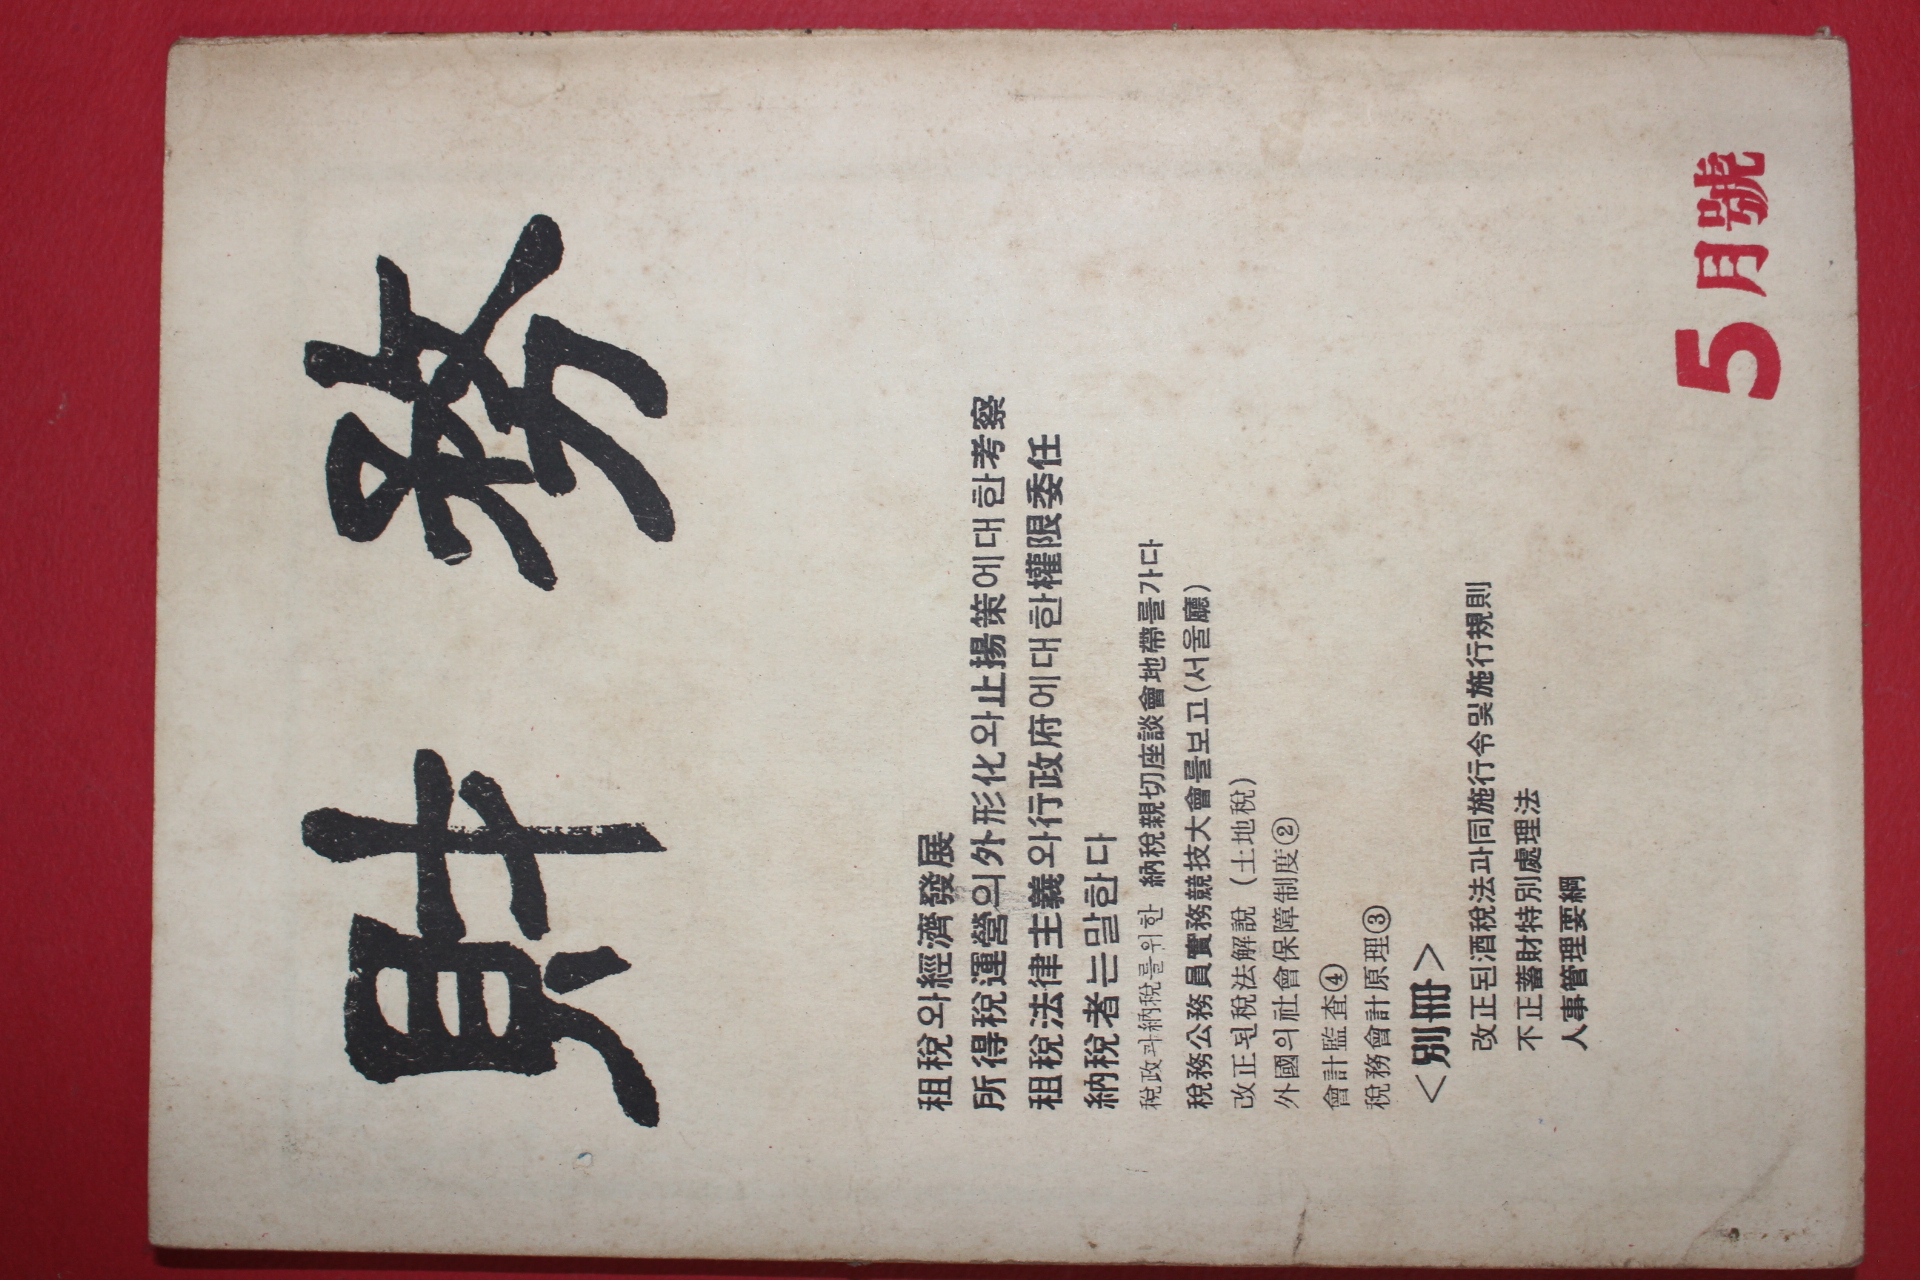 財務
租稅와經濟發展
所得稅運營의外形化와止揚策에대한考察
租稅法律主義와行政府에대한權限委任
納稅者는말한다
稅政과納稅를위한 納稅親切座談會地帶를가다
稅務公務員實務競技大會를보고(서울廳)
改正된稅法解說 (土地稅)
外國의社會保障制度②
會計監査④
稅務會計原理③
<別冊>
改正된酒稅法과同施行令및施行規則
不正蓄財特別處理法
人事管理要綱
5月號